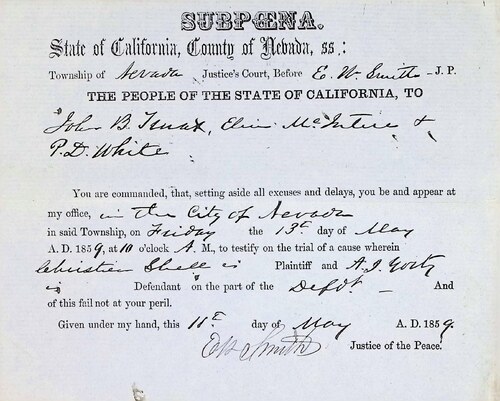 SUBPŒNA.
State of California, County of Nevada, ss:
Township of Nevada Justice's Court, Before E. W. Smith - J. P.
THE PEOPLE OF THE STATE OF CALIFORNIA, TO
John B. McIntire &
P. D. White
You are commanded, that, setting aside all excuses and delays, you be and appear at
my office, in the City of Nevada
in said Township, on Friday the 13th day of May
A. D. 1859, at 10 o'clock A. M., to testify on the trial of a cause wherein
Christian Shell is Plaintiff and A. J.
is Defendant on the part of the Defdt. — And
of this fail not at your peril.
Given under my hand, this 11th day of May A. D. 1859.
E W Smith Justice of the Peace.